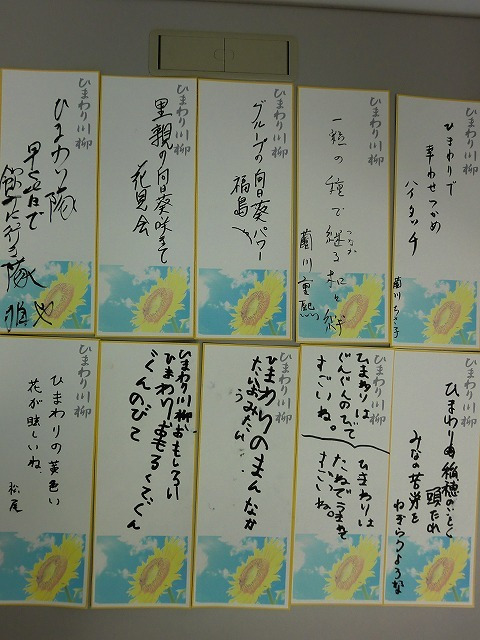 ひまわり川柳
ひまわりで
幸わせつかめ
ハイタッチ
蘭川
ひまわり川柳
一粒の種で継る和と絆
つなが
蘭川
ひまわり川柳
グループの向日葵パワー
福島へ
ひまわり川柳
里親の向日葵咲きて
花見会
ひまわり川柳
ひまわり隊
早く
隊
ひまわり川柳
ひまわり
稲穂のごとく
頭たれ
みなの苦労を
ねぎらうような
ひまわり川柳
ひまわりは
ぐんぐんのびて
すごいね。
ひまわりは
たねでうまれて
すごいね。
ひまわり川柳
ひまわりのまんなか
たいようみたい
ひまわり川柳おもしろい
ひまわりおもろくぐんぐんのびて
ひまわり川柳
ひまわりの黄色い
花が眩しいね
松尾